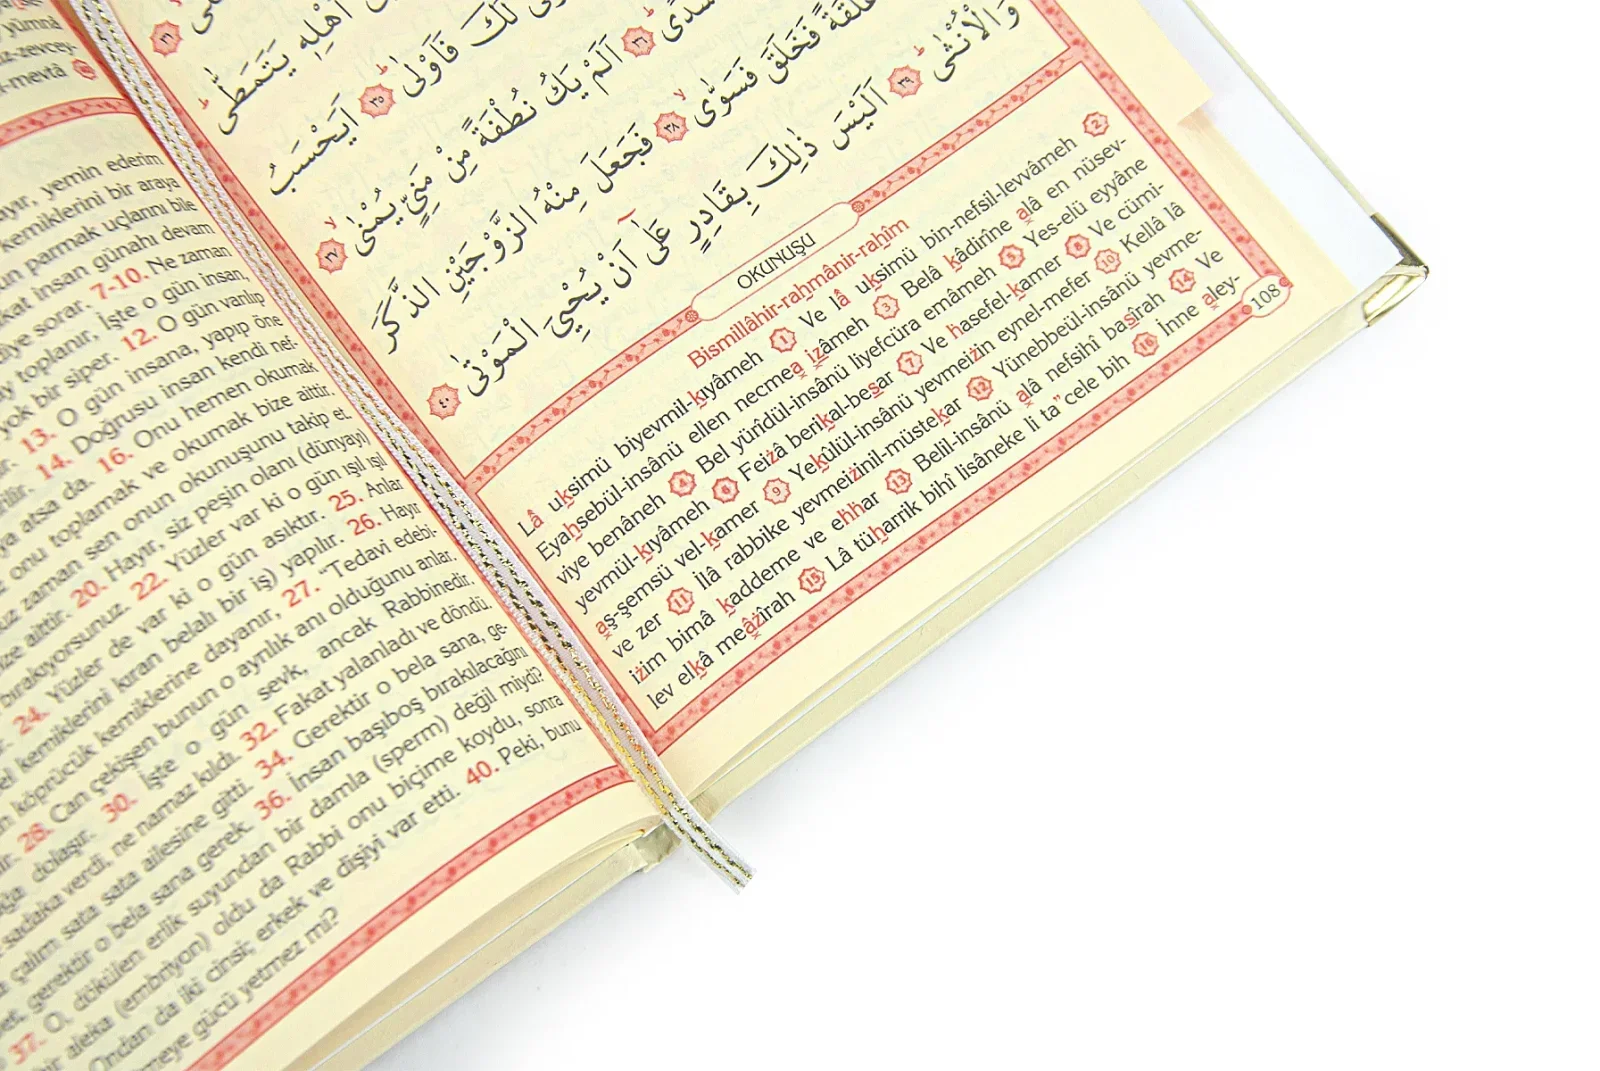 اَهْلِه۪ يَتَمَطّٰىۜ
لَكَ فَاَوْلٰىۙ ﴿٣٥﴾ اَيَحْسَبُ
سُدًىۜ ﴿٣٦﴾ اَلَمْ يَكُ نُطْفَةً مِنْ مَنِيٍّ يُمْنٰىۙ ﴿٣٧﴾
عَلَقَةً فَخَلَقَ فَسَوّٰىۙ ﴿٣٨﴾ فَجَعَلَ مِنْهُ الزَّوْجَيْنِ الذَّكَرَ
وَالْاُنْثٰىۜ ﴿٣٩﴾ اَلَيْسَ ذٰلِكَ بِقَادِرٍ عَلٰٓى اَنْ يُحْيِيَ الْمَوْتٰى ﴿٤٠﴾
OKUNUŞU
Bismillâhir-rahmânir-rahîm
Lâ uksimü biyevmil-kıyâmeh 1 Ve lâ uksimü bin-nefsil-levvâmeh 2
Eyahsebül-insânü ellen necmea izâmeh 3 Belâ kâdirîne alâ en nüsev-
viye benâneh 4 Bel yürîdül-insânü liyefcüra emâmeh 5 Yes-elü eyyâne
yevmül-kıyâmeh 6 Feizâ berikal-besar 7 Ve hasefel-kamer 8 Ve cümi-
aş-şemsü vel-kamer 9 Yekûlül-insânü yevmeizin eynel-mefer 10 Kellâ lâ
ve zer 11 İlâ rabbike yevmeizinil-müstekar 12 Yünebbeül-insânü yevme-
izim bimâ kaddeme ve ehhar 13 Belil-insânü alâ nefsihî basîrah 14 Ve
lev elkâ meâzîrah 15 Lâ tüharrik bihî lisâneke li ta"cele bih 16 İnne aley-
108
yümnâ
iz-zevcey-
-mevtâ
yemin ederim
kemiklerini bir araya
parmak uçlarını bile
insan günahı devam
diye sorar. 7-10. Ne zaman
toplanır, İşte o gün insan,
yok bir siper. 12. O gün varılıp
13. O gün insana, yapıp öne
14. Doğrusu insan kendi nef-
atsa da. 16. Onu hemen okumak
onu toplamak ve okumak bize aittir.
zaman sen onun okunuşunu takip et.
aittir. 20. Hayır, siz peşin olanı (dünyayı)
bırakıyorsunuz. 22. Yüzler var ki o gün ışıl ışıl
24. Yüzler de var ki o gün asıktır. 25. Anlar
kemiklerini kıran belalı bir iş) yapılır. 26. Hayır
köprücük kemiklerine dayanır, 27. "Tedavi edebi-
28. Can çekişen bunun o ayrılık anı olduğunu anlar.
dolaşır. 30. İşte o gün sevk, ancak Rabbinedir.
sadaka verdi, ne namaz kıldı. 32. Fakat yalanladı ve döndü.
çalım sata sata ailesine gitti. 34. Gerektir o bela sana, ge-
gerektir o bela sana gerek. 36. İnsan başıboş bırakılacağını
37. O, dökülen erlik suyundan bir damla (sperm) değil miydi?
bir aleka (embriyon) oldu da Rabbi onu biçime koydu, sonra
Ondan da iki cinsi; erkek ve dişiyi var etti. 40. Peki, bunu
gücü yetmez mi?